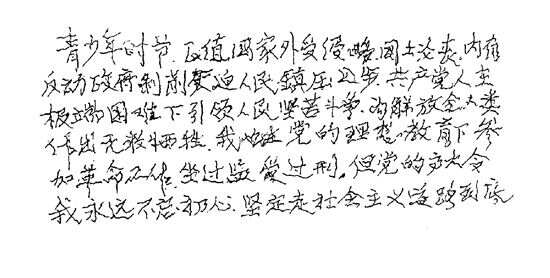 青少年时节.正值国家外受侵略国土沦丧.内有
反动政府剥削压迫人民.镇压进步.共产党人在
极端困难下引领人民坚苦斗争.为解放全人类
作出无数牺牲.我也在党的理想教育下参
加革命工作.坐过监受过刑.但党的
我永远不忘初心.坚定走社会主义道路到底